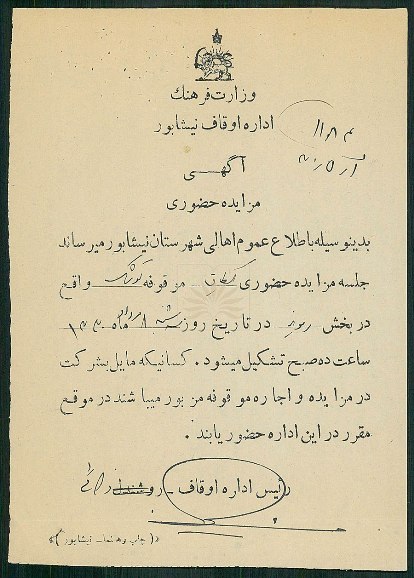 وزارت فرهنگ
اداره اوقاف نیشابور
آگهی
مزایده حضوری
بدینوسیله باطلاع عموم اهالی شهرستان نیشابور میرساند
جلسه مزایده حضوری موقوفه واقع
در بخش در تاریخ روز ماه ۱۳۳۰
ساعت ده صبح تشکیل میشود . کسانیکه مایل بشرکت
در مزایده و اجاره موقوفه مزبور میباشند در موقع
مقرر در این اداره حضور یابند .
رئیس اداره اوقاف -
«( چاپ رهنما - نیشابور )»